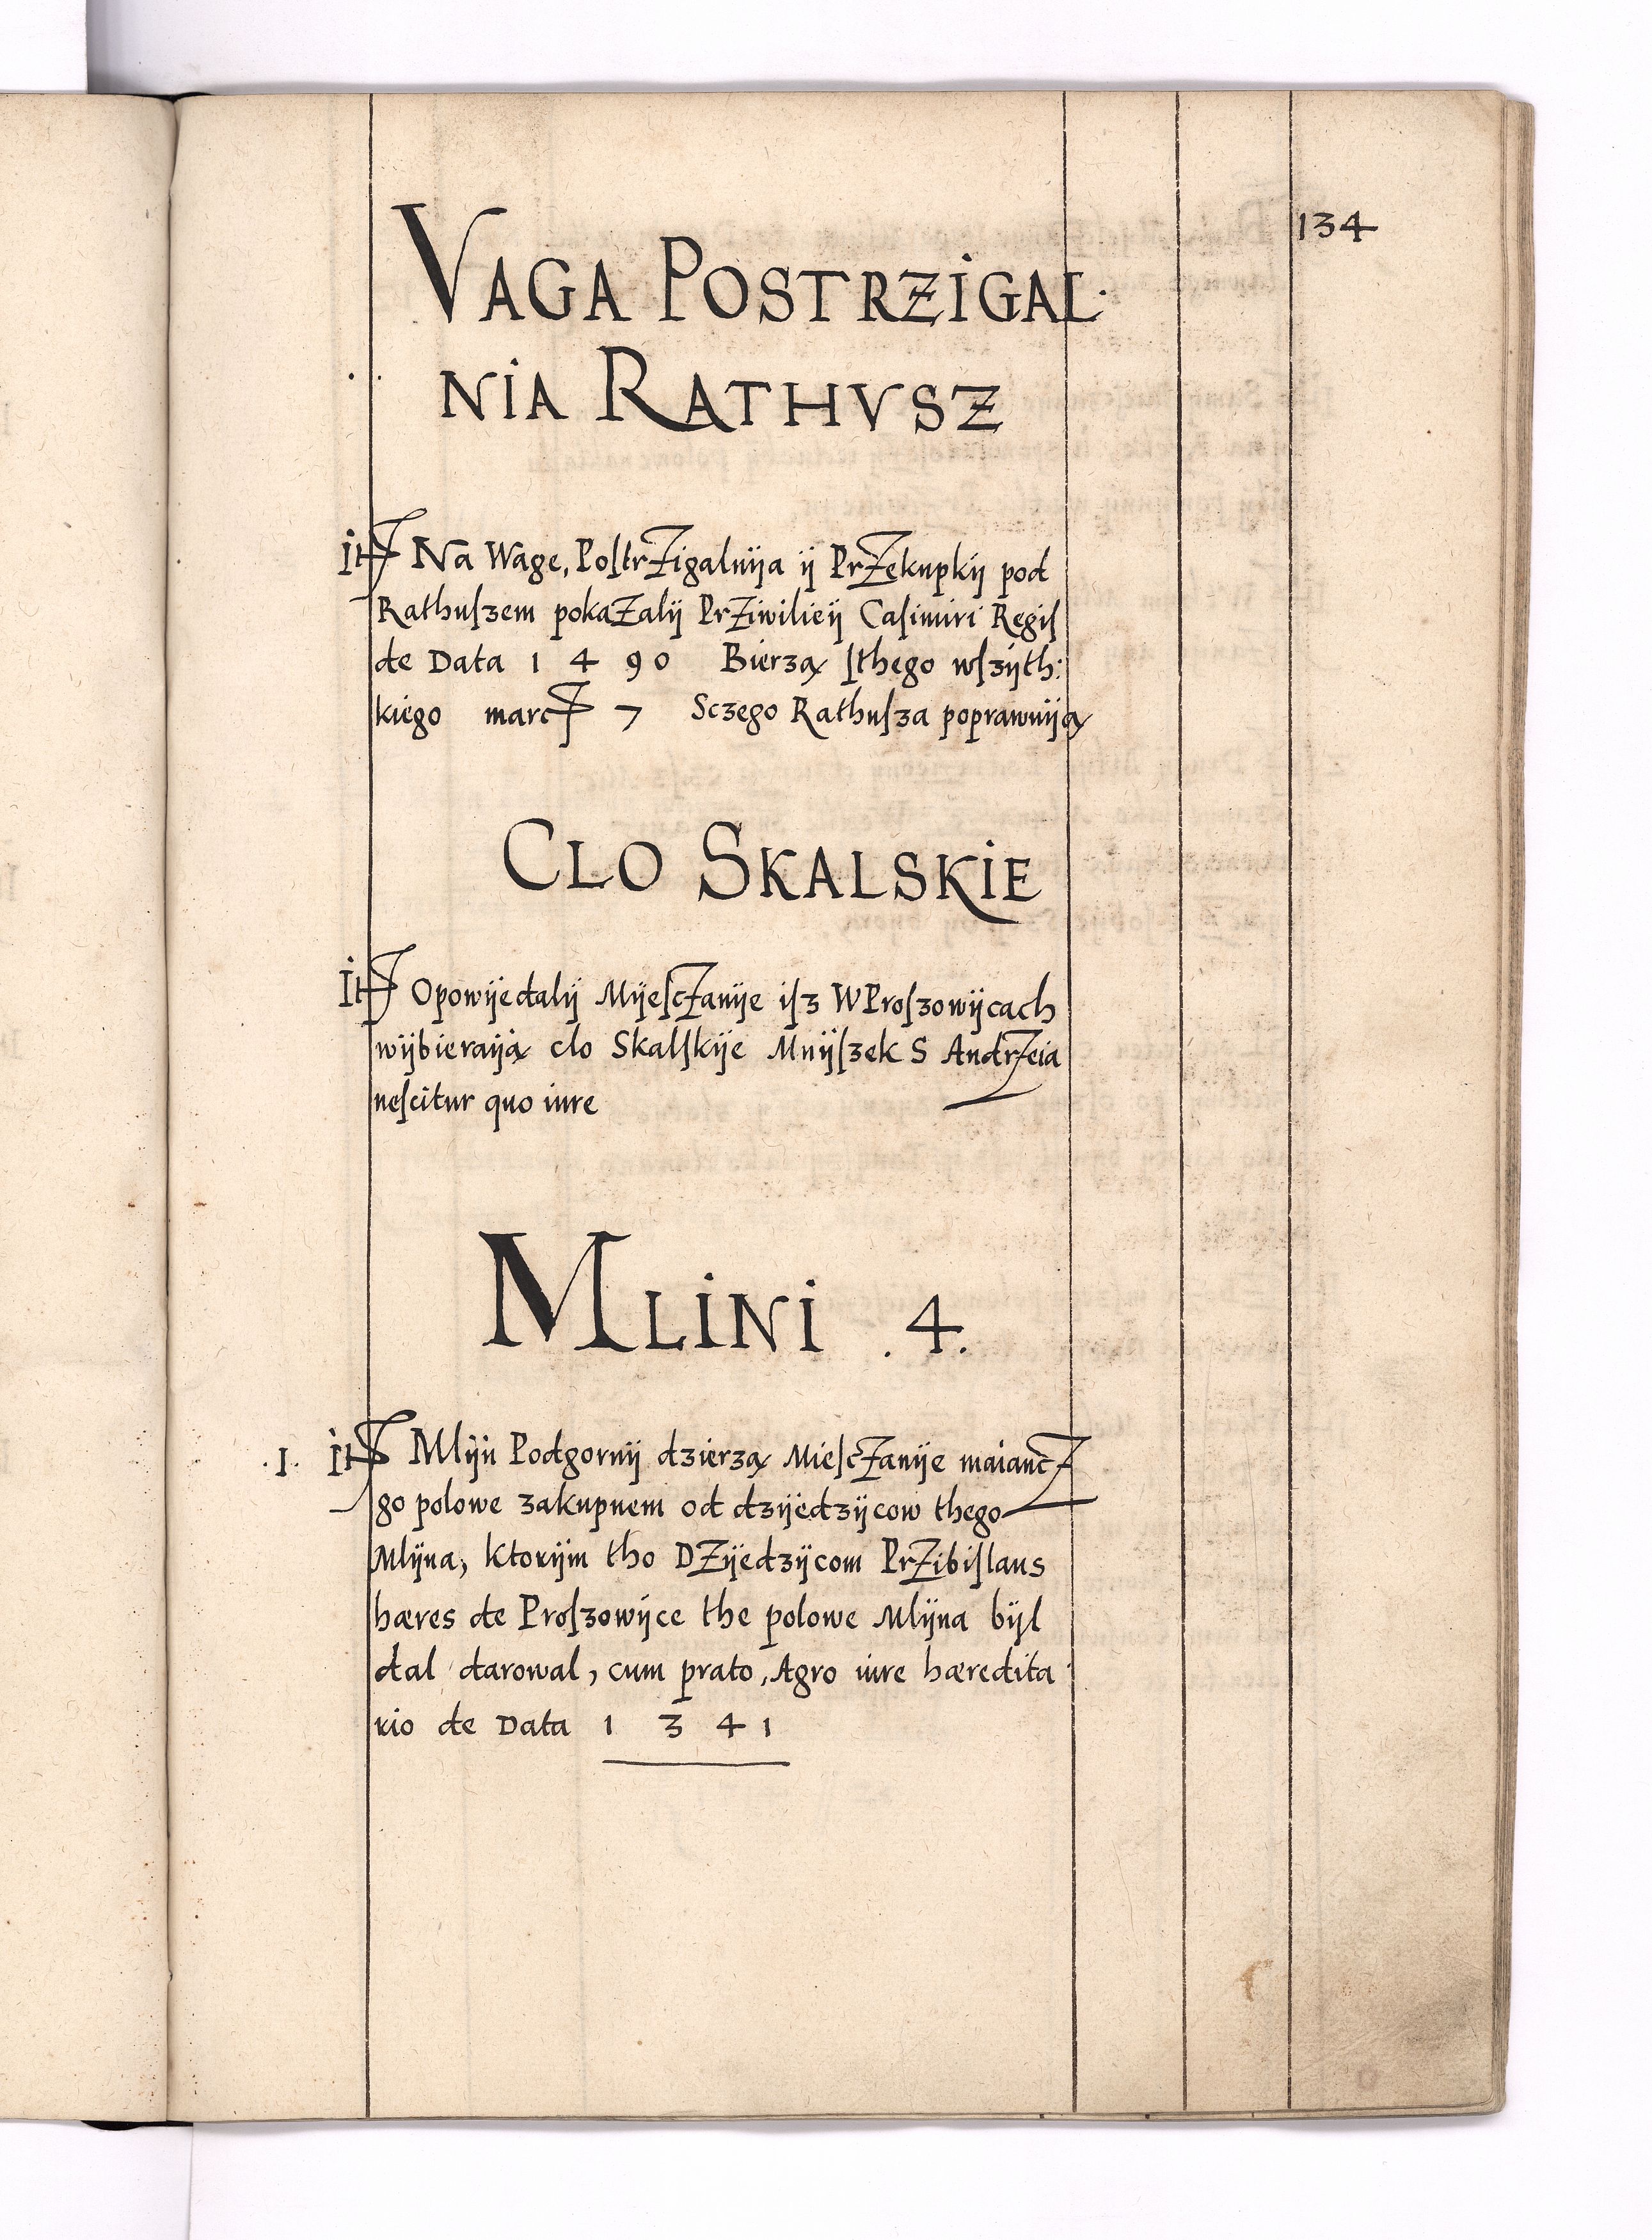 134
VAGA POSTRZIGAL-
NIA RATHVSZ
It Na Wage, PoſtrZigalnÿa ÿ PrZekupkÿ pod
Rathuſzem pokaZalÿ PrZiwilieÿ Caſimiri Regiſ
de Data 1 4 9 0 Bierzą ſthego wſzÿth:
kiego marc 7 Sczego Rathuſza poprawuÿą
CLO SKALSKIE
It Opowÿedalÿ MÿeſcZanÿe iſz WProſzowÿcach
wÿbieraÿą clo Skalſkÿe Mnÿſzek S AndrZeia
neſcitur quo iure
MLINI .4.
.1. It Mlÿn Podgornÿ dzierzą MieſcZanÿe maiancZ
go polowe zakupnem od dzÿedzÿcow thego
Mlÿna, ktorÿm tho DZÿedzÿcom PrZibiſlaus
hæres de Proſzowÿce the polowe Mlÿna bÿl
dal darowal, cum prato, Agro iure hæredita
rio de Data 1 3 4 1